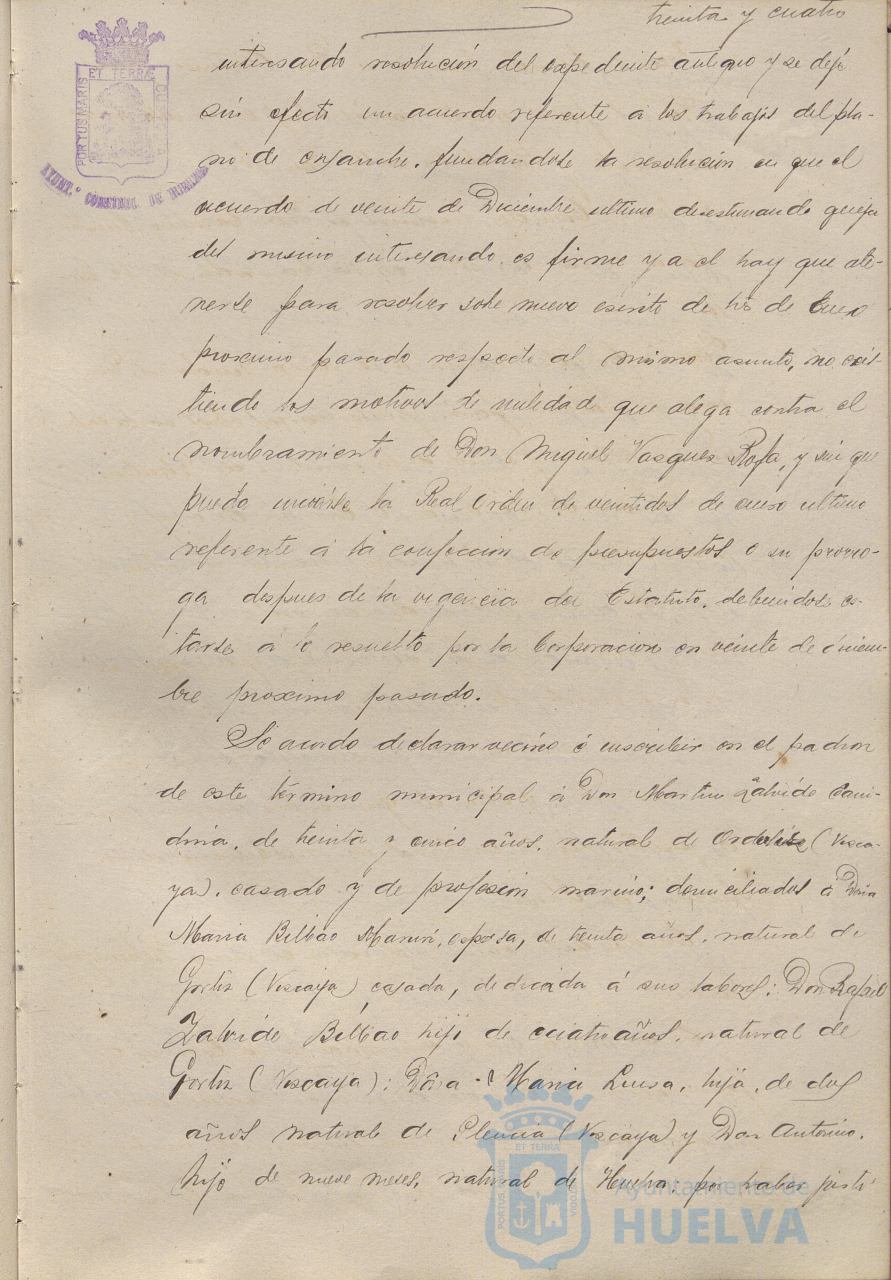 treinta y cuatro
PORTUS MARIS ET TERRÆ CUSTODIA
AYUNT.º CONSTITUC. DE HUELVA
interesando resolución del expediente antiguo y se dejó
sin efecto un acuerdo referente á los trabajos del pla-
no de ensanche, fundandose la resolución en que el
acuerdo de veinte de Diciembre ultimo desestimando queja
del mismo interesando es firme y a el hay que ate-
nerse para resolver sobre nuevo escrito de tres de Enero
proximo pasado respecto al mismo asunto, no exis-
tiendo los motivos de nulidad que alega contra el
nombramiento de Don Miguel Vasquez Rofa, y sin que
pueda la Real Orden de veintidos de enero ultimo
referente á la confeccion de presupuestos o su prorro-
ga despues de la vigencia del Estatuto, debiendose es-
tarse a lo resuelto por la Corporacion en veinte de diciem-
bre proximo pasado.
Se acordo declarar vecino é inscribir en el padron
de este termino municipal á Don Martin Zalvide
de treinta y cinco años, natural de (Visca-
ya), casado y de profesion marino; domiciliados á Doña
Maria Bilbao esposa, de treinta años, natural de
Gorliz (Viscaya) casada, dedicada á sus labores; Don Rafael
Zalvide Bilbao hijo de cuatro años, natural de
Gorliz (Viscaya); Dña Maria Luisa, hija, de dos
años natural de Plencia (Viscaya) y Don Antonino,
hijo de nueve meses, natural de Huelva; por haber justi
PORTUS MARIS ET TERRA CUSTODIA
Ayuntamiento de
HUELVA